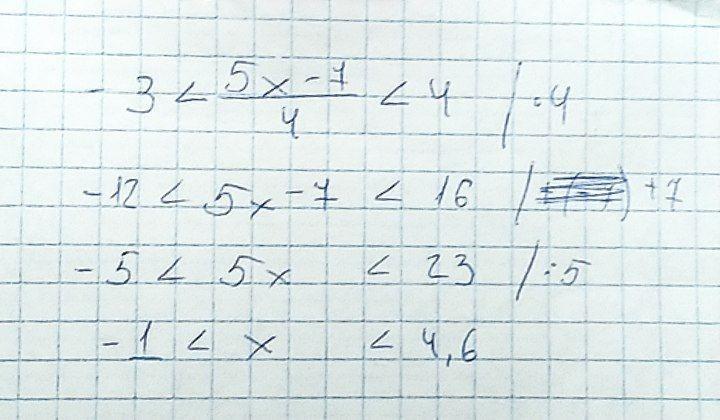 -3 < (5x-7)/4 < 4 /·4
-12 < 5x-7 < 16 / +7
-5 < 5x < 23 /:5
-1 < x < 4,6